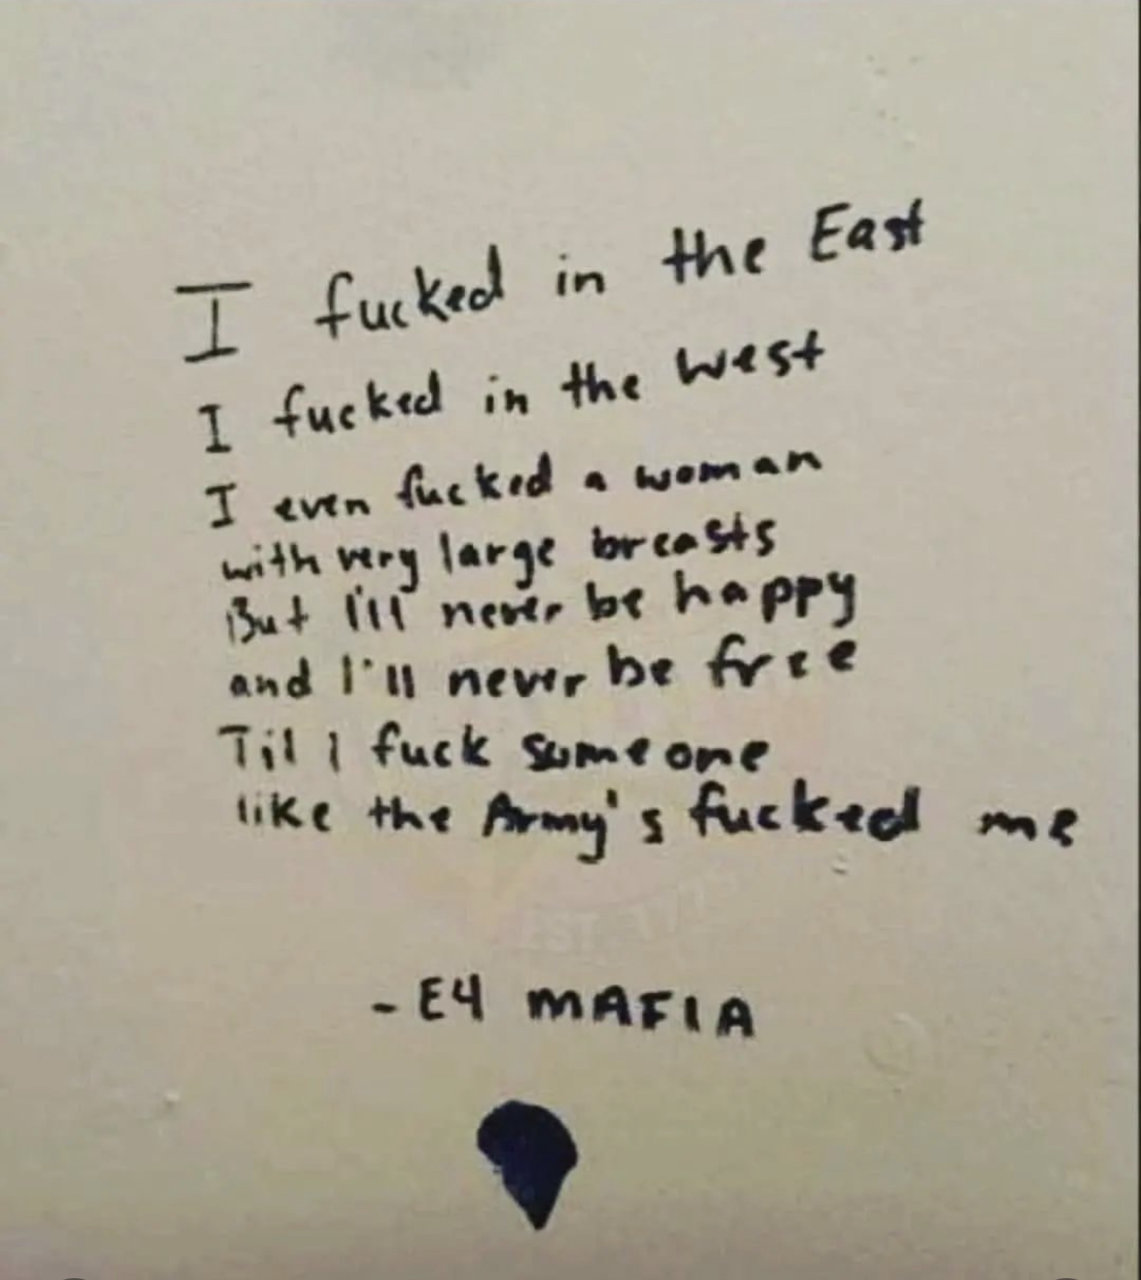 I fucked in the East
I fucked in the west
I even fucked a woman
with very large breasts
But I'll never be happy
and I'll never be free
Till I fuck someone
like the Army's fucked me
- E4 MAFIA